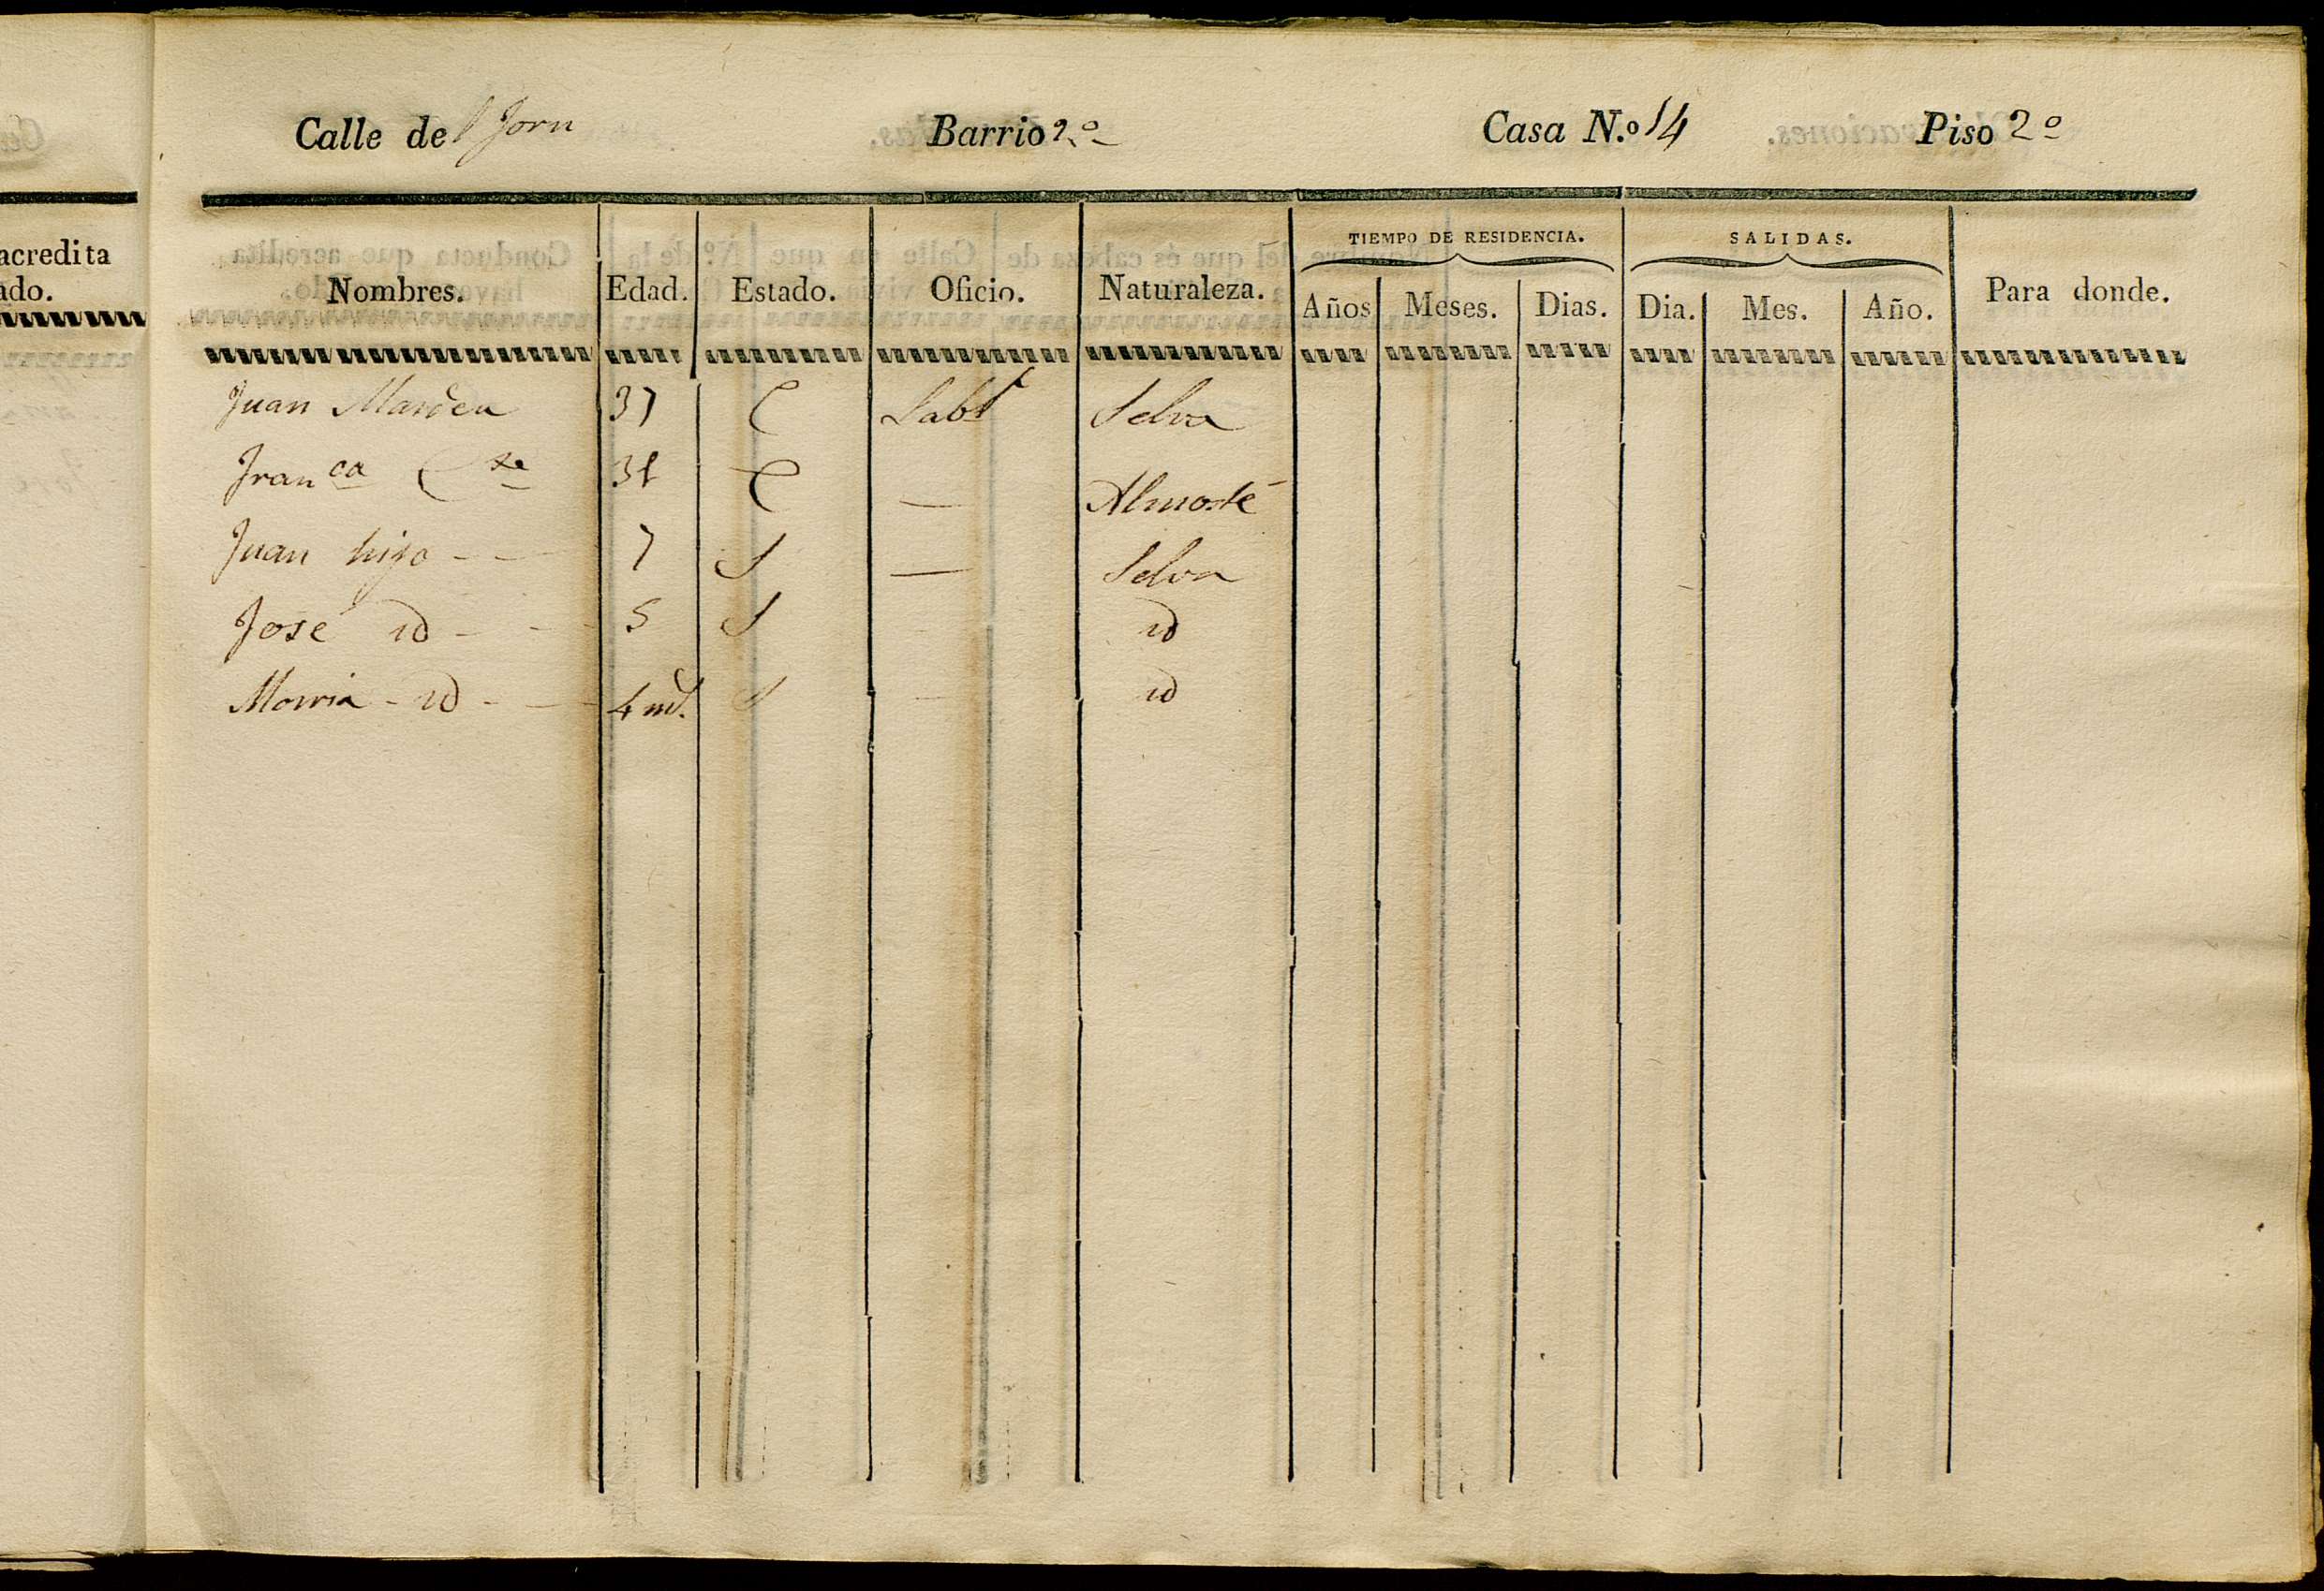 Calle de l Forn Barrio 2.º Casa N.º 14 Piso 2º
acredita
ado.
TIEMPO DE RESIDENCIA. SALIDAS.
Nombres. Edad. Estado. Oficio. Naturaleza. Años Meses. Dias. Dia. Mes. Año. Para donde.
Juan 37 C Labr Selva
Franca C 31 C — Almosté
Juan hijo - - 7 S — Selva
José id - - 5 S id
Maria - id - - 4 ms. S - id